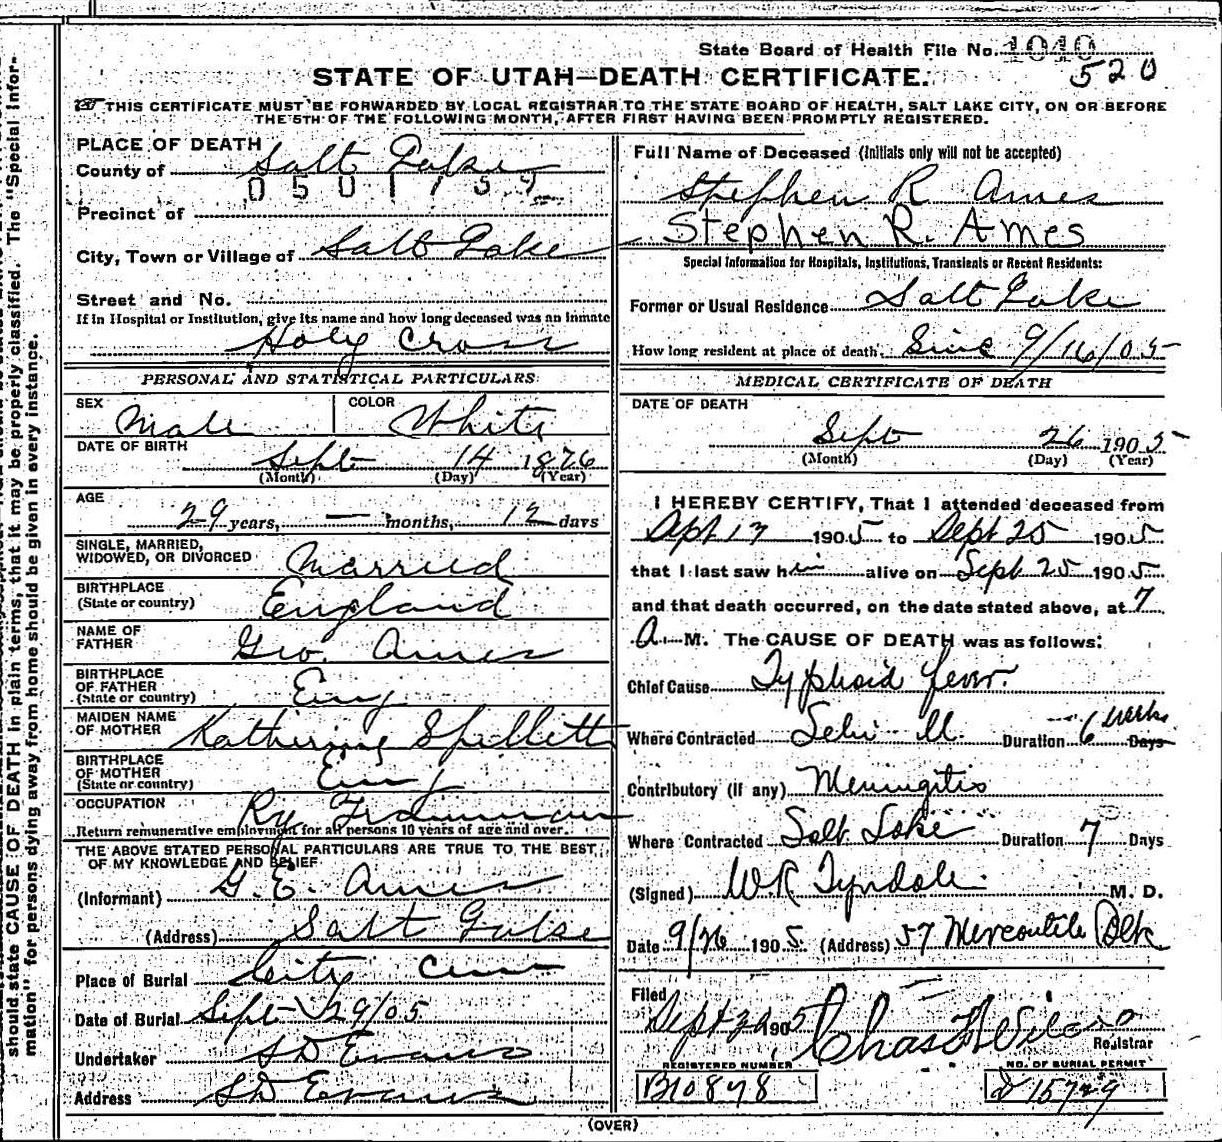 State Board of Health File No. 1040
520
STATE OF UTAH—DEATH CERTIFICATE.
THIS CERTIFICATE MUST BE FORWARDED BY LOCAL REGISTRAR TO THE STATE BOARD OF HEALTH, SALT LAKE CITY, ON OR BEFORE
THE 5TH OF THE FOLLOWING MONTH, AFTER FIRST HAVING BEEN PROMPTLY REGISTERED.
PLACE OF DEATH
County of Salt Lake
0501759
Precinct of
City, Town or Village of Salt Lake
Street and No.
If in Hospital or Institution, give its name and how long deceased was an inmate
Holy Cross
PERSONAL AND STATISTICAL PARTICULARS
SEX Male COLOR White
DATE OF BIRTH
Sept 14 1876
(Month) (Day) (Year)
AGE
29 years, — months, 12 days
SINGLE, MARRIED,
WIDOWED, OR DIVORCED Married
BIRTHPLACE
(State or country) England
NAME OF
FATHER Geo. Ames
BIRTHPLACE
OF FATHER
(State or country) Eng
MAIDEN NAME
OF MOTHER Katherine Spillett
BIRTHPLACE
OF MOTHER
(State or country) Eng
OCCUPATION Ry Trainman
Return remunerative employment for all persons 10 years of age and over.
THE ABOVE STATED PERSONAL PARTICULARS ARE TRUE TO THE BEST
OF MY KNOWLEDGE AND BELIEF
(Informant) G. E. Ames
(Address) Salt Lake
Place of Burial City Cem
Date of Burial Sept 29/05
Undertaker SD Evans
Address SD Evans
Full Name of Deceased (Initials only will not be accepted)
Stephen R Ames
Stephen R. Ames
Special Information for Hospitals, Institutions, Transients or Recent Residents:
Former or Usual Residence Salt Lake
How long resident at place of death. Since 9/16/05
MEDICAL CERTIFICATE OF DEATH
DATE OF DEATH
Sept 26 1905
(Month) (Day) (Year)
I HEREBY CERTIFY, That I attended deceased from
Sept 17 1905 to Sept 25 1905
that I last saw him alive on Sept 25 1905
and that death occurred, on the date stated above, at 7
A. M. The CAUSE OF DEATH was as follows:
Chief Cause Typhoid fever.
Where Contracted Duration 6 weeks Days
Contributory (if any) Meningitis
Where Contracted Salt Lake Duration 7 Days
(Signed) WR Tyndale M. D.
Date 9/26 1905 (Address) 57 Mercantile Blk
Filed
Sept 1905 Chas Wilcox
Registrar
REGISTERED NUMBER NO. OF BURIAL PERMIT
B10878 15729
(OVER)
should state CAUSE OF DEATH in plain terms, that it may be properly classified. The "Special Infor-
mation" for persons dying away from home should be given in every instance.